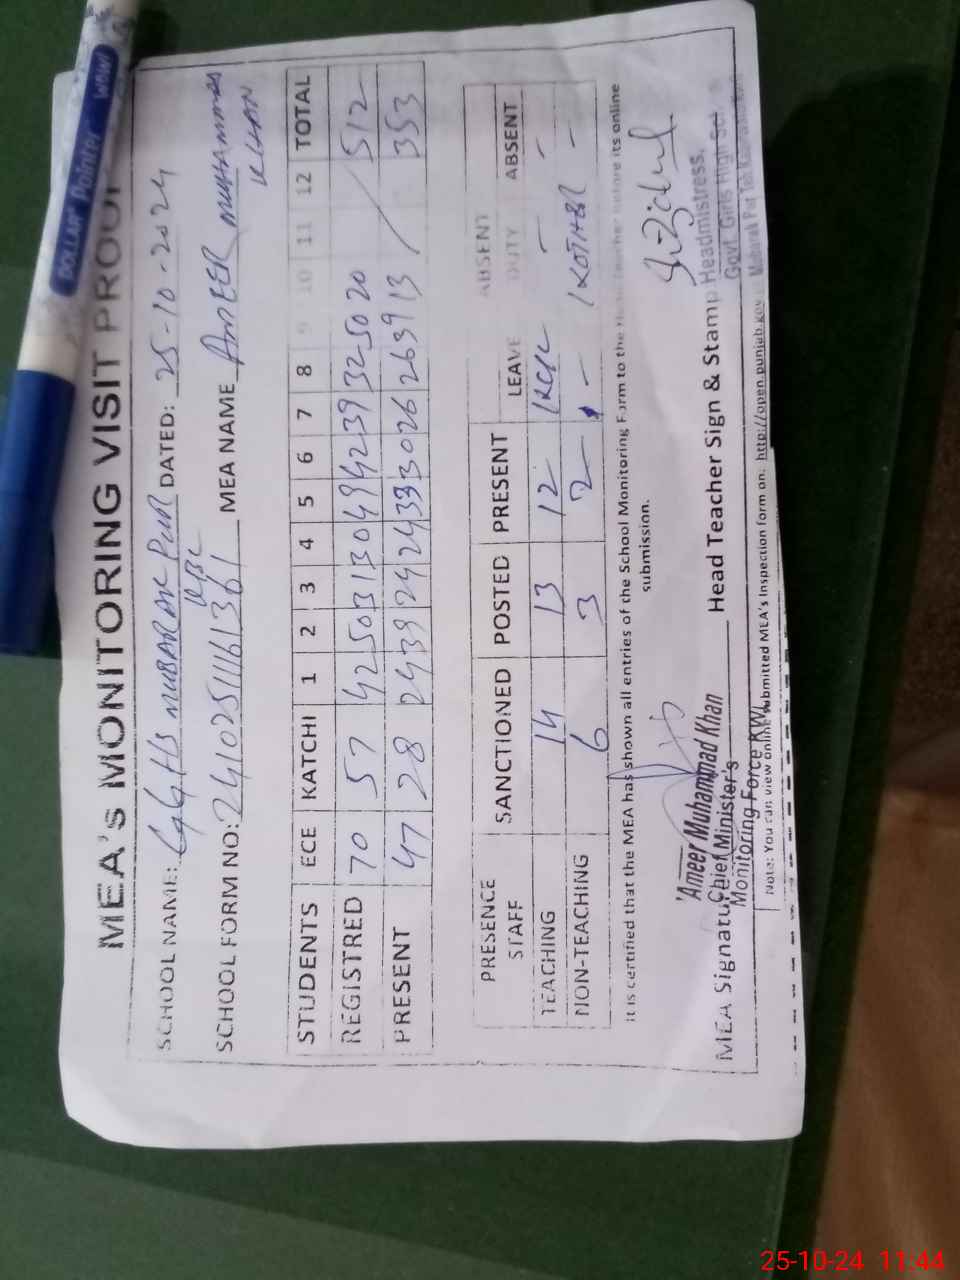 MEA's MONITORING VISIT PROOF
SCHOOL NAME: GGHS MUBARAK PUR DATED: 25-10-2024
SCHOOL FORM NO: MEA NAME AMEER MUHAMMAD
KHAN
STUDENTS ECE KATCHI 1 2 3 4 5 6 7 8 9 10 11 12 TOTAL
REGISTRED 70 57 42 50 31 30 49 42 39 32 50 20 512
PRESENT 47 28 24 39 24 24 33 30 26 26 39 13 353
PRESENCE SANCTIONED POSTED PRESENT ABSENT
STAFF LEAVE DUTY ABSENT
TEACHING 14 13 12 - -
NON-TEACHING 6 3 2 - -
It is certified that the MEA has shown all entries of the School Monitoring Form to the Head Teacher before its online
submission.
MEA Signature Head Teacher Sign & Stamp
Ameer Muhammad Khan
Chief Minister's
Monitoring Force
Headmistress.
Govt. Girls High
Mubarak Pur
Note: You can view online submitted MEA's Inspection form on: http://open.punjab.gov
DOLLAR Pointer WOW!
25-10-24 11:44